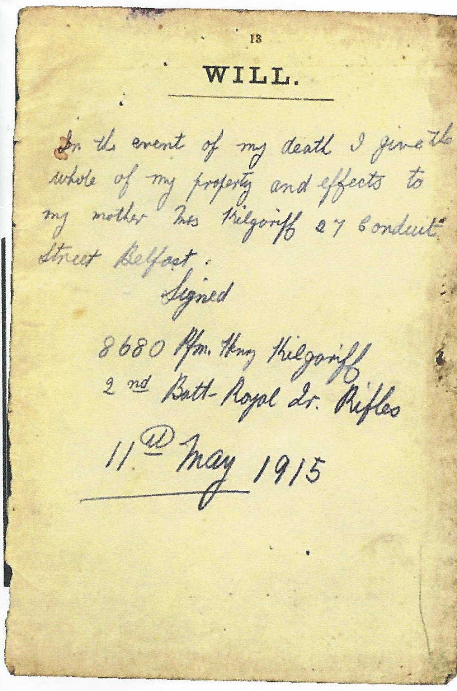 13
WILL.
In the event of my death I give the
whole of my property and effects to
my mother Mrs Kilgariff 27 Conduit
Street Belfast.
Signed
8680 Rfm. Hny Kilgariff
2nd Batt- Royal Ir. Rifles
11th May 1915